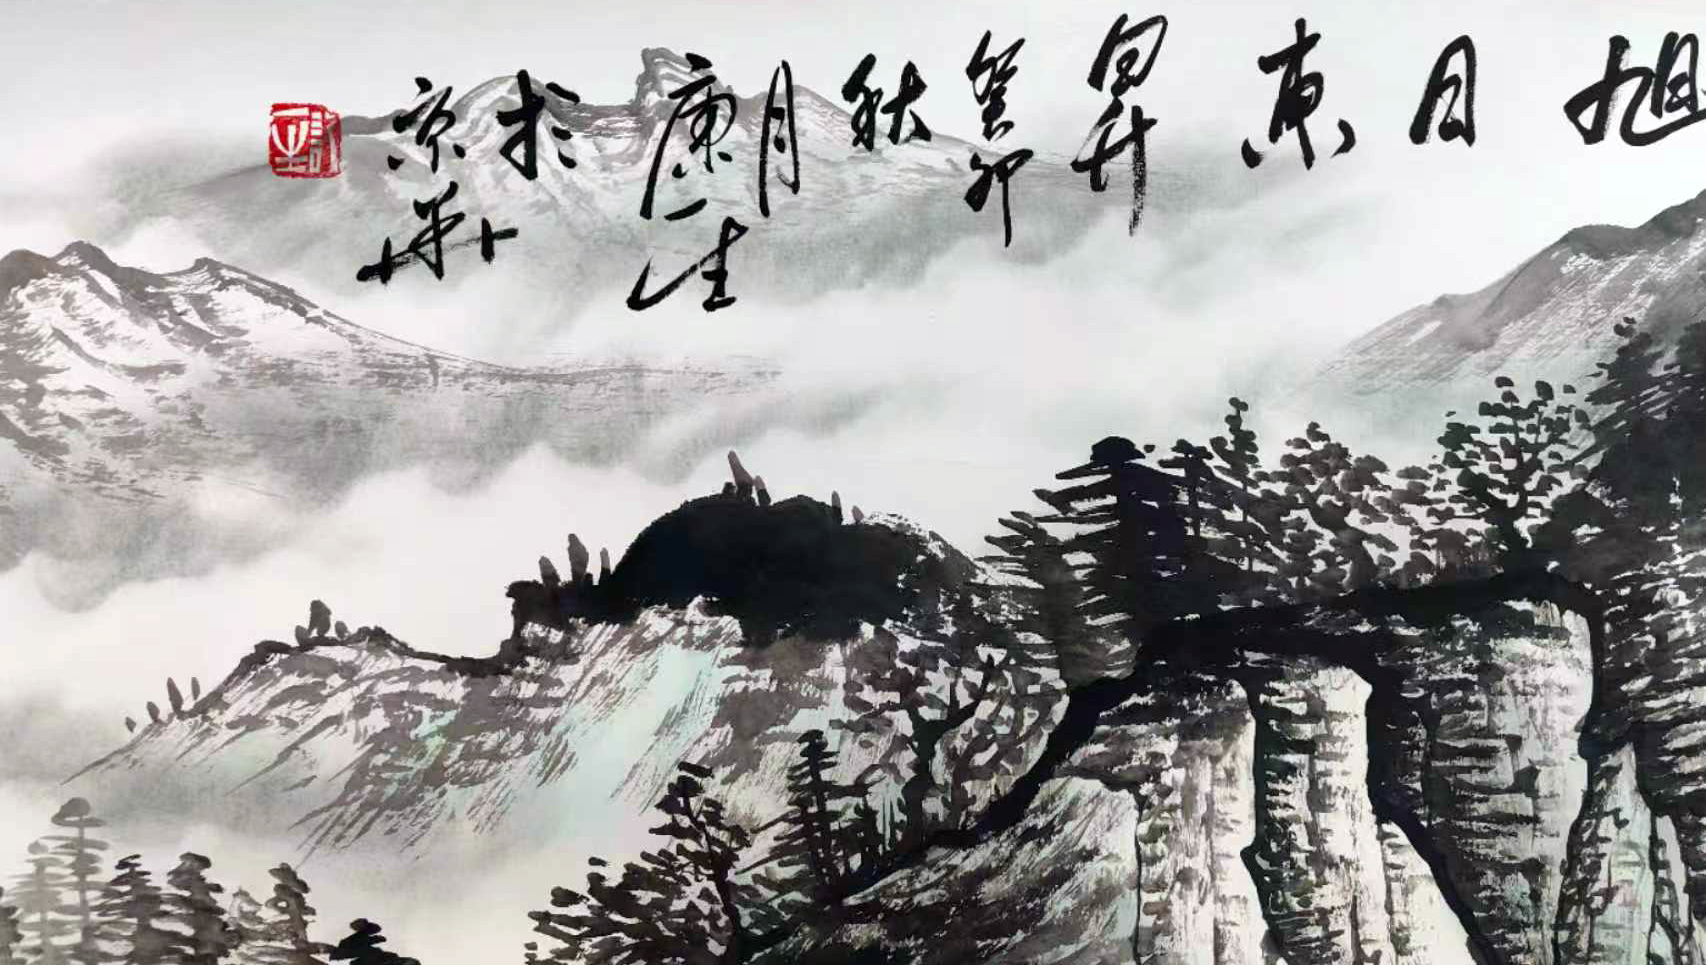 旭日東昇
癸卯秋月
康生於京華